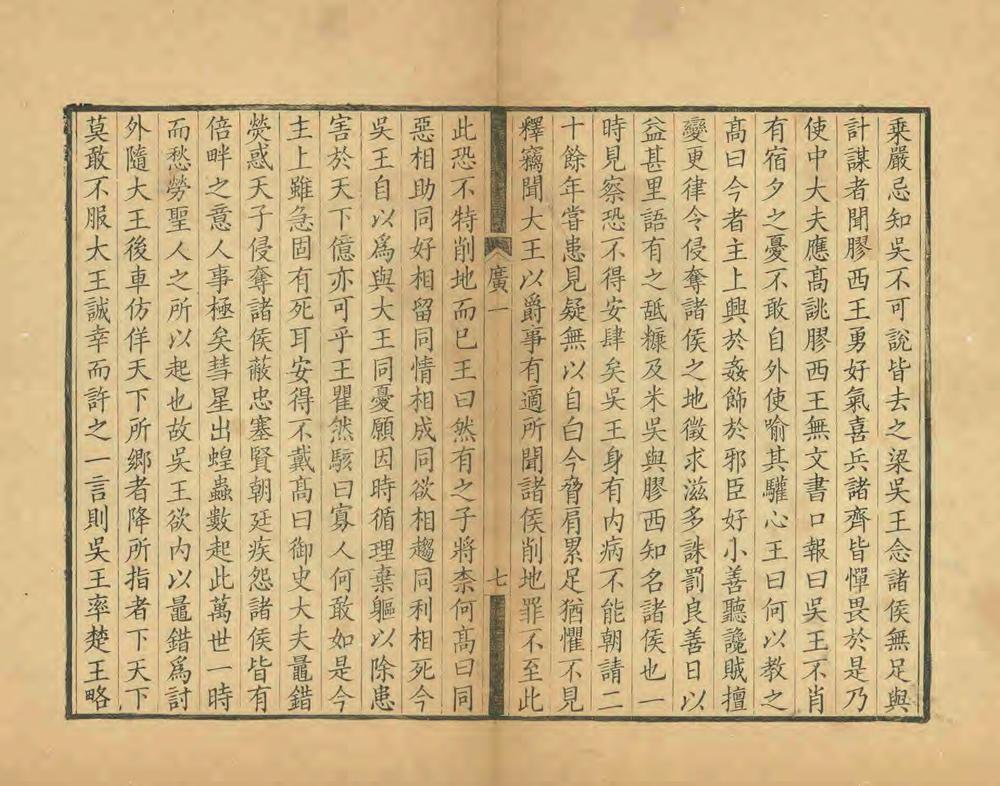 乘嚴忌知吳不可說皆去之梁吳王念諸侯無足與
計謀者聞膠西王勇好氣喜兵諸齊皆憚畏於是乃
使中大夫應髙誂膠西王無文書口報曰吳王不肖
有宿夕之憂不敢自外使喻其驩心王曰何以教之
髙曰今者主上興於姦飾於邪臣好小善聽讒賊擅
變更律令侵奪諸侯之地徵求滋多誅罰良善日以
益甚里語有之䑛糠及米吳與膠西知名諸侯也一
時見察恐不得安肆矣吳王身有内病不能朝請二
十餘年嘗患見疑無以自白今脅肩累足猶懼不見
釋竊聞大王以爵事有適所聞諸侯削地罪不至此
廣一
七
此恐不特削地而已王曰然有之子將柰何髙曰同
惡相助同好相留同情相成同欲相趨同利相死今
吳王自以爲與大王同憂願因時循理棄軀以除患
害於天下億亦可乎王瞿然駭曰寡人何敢如是今
主上雖急固有死耳安得不戴髙曰御史大夫鼂錯
熒惑天子侵奪諸侯蔽忠塞賢朝廷疾怨諸侯皆有
倍畔之意人事極矣彗星出蝗蟲數起此萬世一時
而愁勞聖人之所以起也故吳王欲内以鼂錯爲討
外隨大王後車彷徉天下所鄉者降所指者下天下
莫敢不服大王誠幸而許之一言則吳王率楚王略